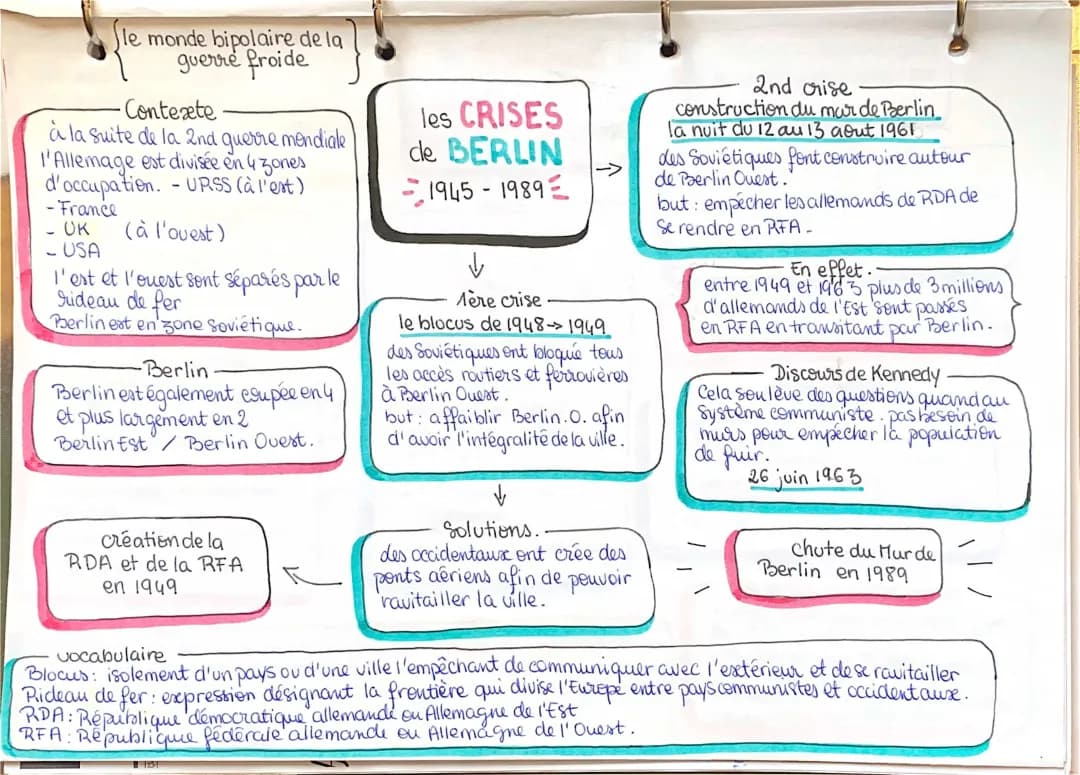 le monde bipolaire de la
guerre froide
les CRISES
de BERLIN
1945 - 1989
Contexte
à la suite de la 2nd guerre mondiale
l'Allemage est divisée en 4 zones
d'occupation. - URSS (à l'est)
- France
- UK (à l'ouest)
- USA
l'est et l'ouest sont séparés par le
rideau de fer
Berlin est en zone Soviétique.
Berlin
Berlin est également coupée en 4
et plus largement en 2
Berlin Est / Berlin Ouest.
1ère crise
le blocus de 1948 → 1949
des Soviétiques ont bloqué tous
les accès routiers et ferrovières
à Berlin Ouest.
but : affaiblir Berlin.O. afin
d'avoir l'intégralité de la ville.
Solutions.
des occidentaux ont crée des
ponts aériens afin de pouvoir
ravitailler la ville.
création de la
RDA et de la RFA
en 1949
2nd crise
construction du mur de Berlin
la nuit du 12 au 13 aout 1961
des Soviétiques font construire autour
de Berlin Ouest.
but : empêcher les allemands de RDA de
se rendre en RFA.
En effet.
entre 1949 et 1963 plus de 3 millions
d'allemands de l'Est sont passés
en RFA en transitant par Berlin.
Discours de Kennedy
Cela soulève des questions quand au
système communiste. pas besoin de
murs pour empêcher la population
de fuir.
26 juin 1963
Chute du Mur de
Berlin en 1989
vocabulaire
Blocus : isolement d'un pays ou d'une ville l'empêchant de communiquer avec l'extérieur et de se ravitailler
Rideau de fer : expression désignant la frontière qui divise l'Europe entre pays communistes et occidentaux.
RDA : République démocratique allemande ou Allemagne de l'Est
RFA : République fédérale allemande ou Allemagne de l'Ouest.